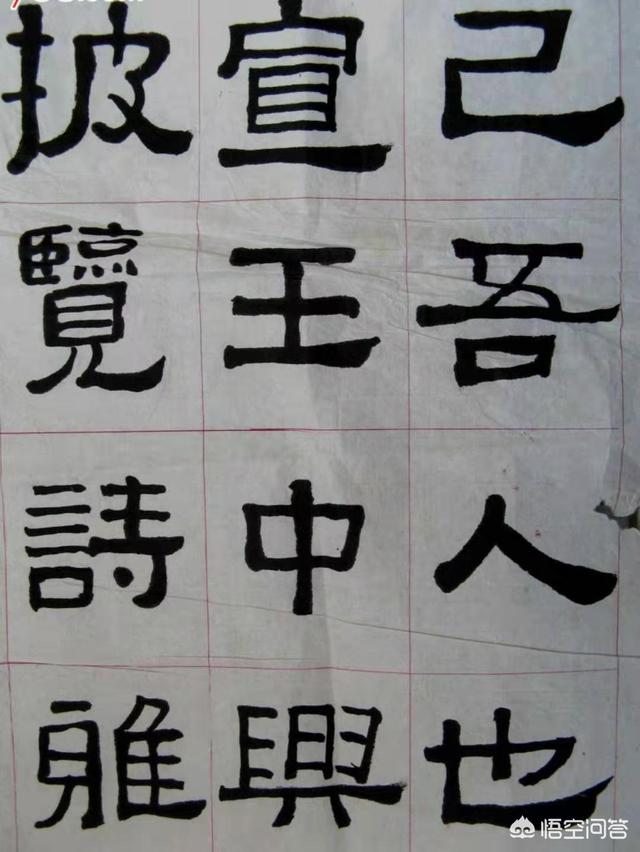 己吾人也
宣王中興
披覽詩雅
悟空问答